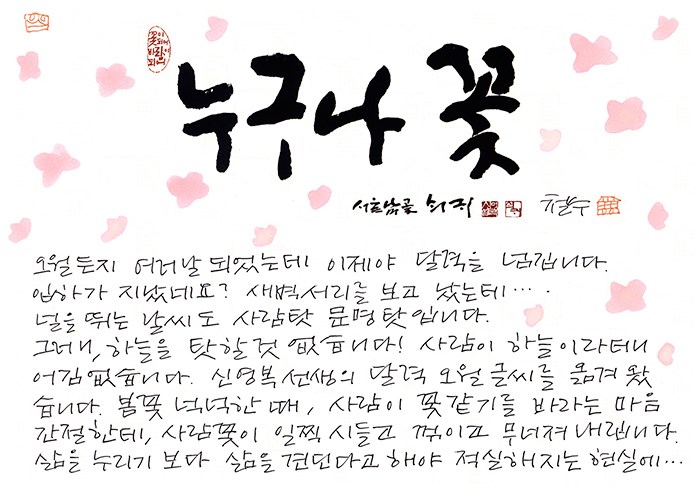 누구나 꽃
쇠귀 철수
오월 든지 여러날 되었는데 이제야 달력을 넘깁니다.
입하가 지났네요? 새벽서리를 보고 났는데….
널을 뛰는 날씨도 사람탓 문명탓입니다.
그러네, 하늘을 탓할것 없습니다! 사람이 하늘이라더니
어김없습니다. 신영복선생의 달력 오월 글씨를 옮겨 왔
습니다. 봄꽃 넉넉한 때, 사람이 꽃같기를 바라는 마음
간절한데, 사람꽃이 일찍 시들고 꺾이고 무너져 내립니다.
삶을 누리기 보다 삶을 견딘다고 해야 적실해지는 현실에…